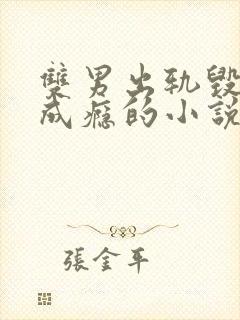 雙男出軌毀
成癮的小說
張金平